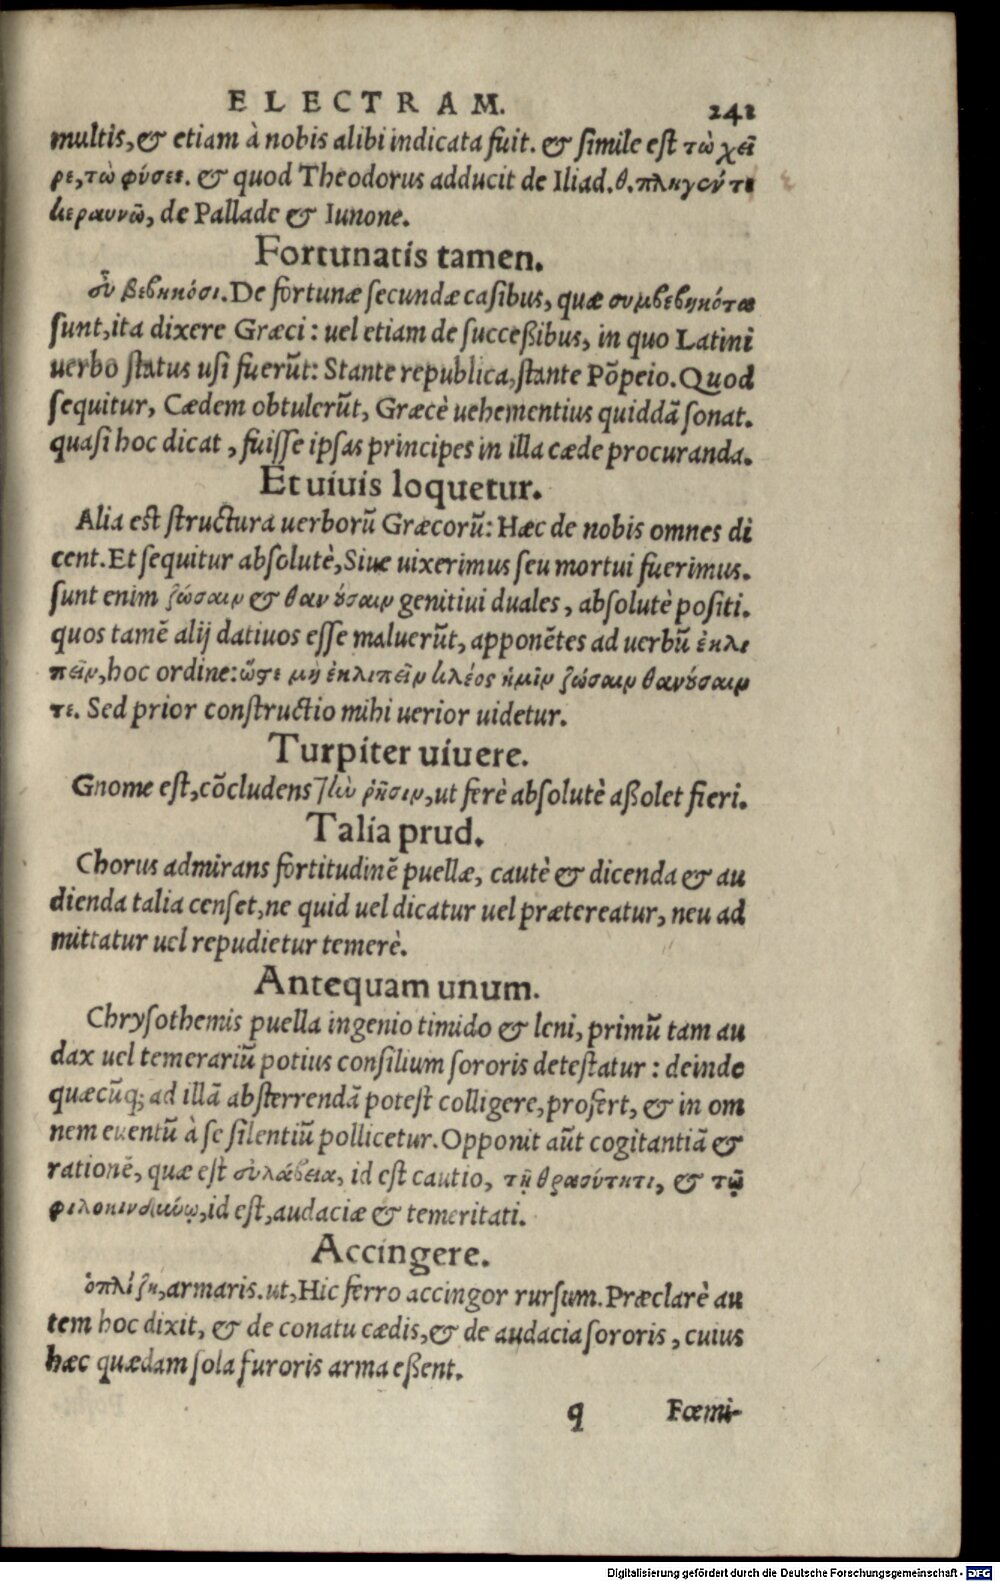 ELECTRAM. 241
multis, & etiam à nobis alibi indicata fuit. & simile est τὼ χεῖ
ρε, τὼ φύσει. & quod Theodorus adducit de Iliad. θ. πληγούτε
κεραυνῶ, de Pallade & Iunone.
Fortunatis tamen.
εὖ βεβηκόσι. De fortunæ secundæ casibus, quæ συμβεβηκότα
sunt, ita dixere Græci: uel etiam de succeßibus, in quo Latini
uerbo status usi fuerũt: Stante republica, stante Põpeio. Quod
sequitur, Cædem obtulerũt, Græcè uehementius quiddã sonat.
quasi hoc dicat, fuisse ipsas principes in illa cæde procuranda.
Et uiuis loquetur.
Alia est structura uerborũ Græcorũ: Hæc de nobis omnes di
cent. Et sequitur absolutè, Siue uixerimus seu mortui fuerimus.
sunt enim ζώσαιν & θανούσαιν genitiui duales, absolutè positi.
quos tamẽ alij datiuos esse maluerũt, apponẽtes ad uerbũ ἐκλι
πεῖν, hoc ordine: ὥστε μὴ ἐκλιπεῖν κλέος ἡμῖν ζώσαιν θανούσαιν
τε. Sed prior constructio mihi uerior uidetur.
Turpiter uiuere.
Gnome est, cõcludens τὴν ῥῆσιν, ut ferè absolutè aßolet fieri.
Talia prud.
Chorus admirans fortitudinẽ puellæ, cautè & dicenda & au
dienda talia censet, ne quid uel dicatur uel prætereatur, neu ad
mittatur uel repudietur temerè.
Antequam unum.
Chrysothemis puella ingenio timido & leni, primũ tam au
dax uel temerariũ potius consilium sororis detestatur: deinde
quæcũq; ad illã absterrendã potest colligere, profert, & in om
nem euentũ à se silentiũ pollicetur. Opponit aũt cogitantiã &
rationẽ, quæ est εὐλάβεια, id est cautio, τῇ θρασύτητι, & τῷ
φιλοκινδύνῳ, id est, audaciæ & temeritati.
Accingere.
ὁπλίζῃ, armaris. ut, Hic ferro accingor rursum. Præclarè au
tem hoc dixit, & de conatu cædis, & de audacia sororis, cuius
hæc quædam sola furoris arma eßent.
q Fœmi-
Digitalisierung gefördert durch die Deutsche Forschungsgemeinschaft - DFG